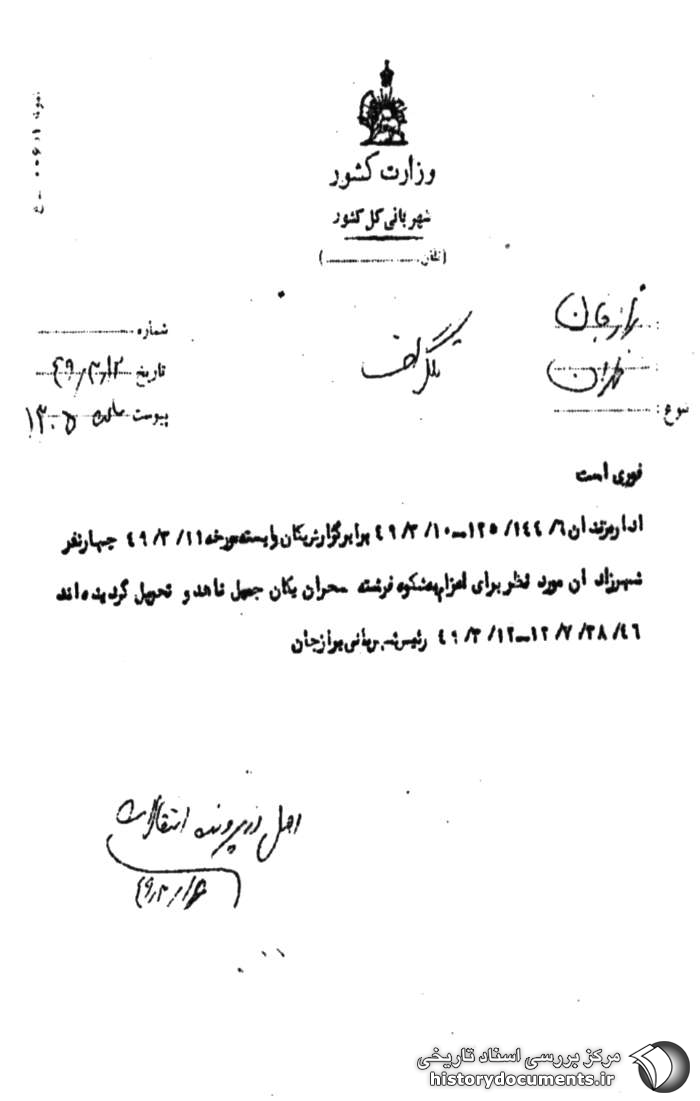 وزارت کشور
شهربانی کل کشور
(تلفن ............)
شماره
تاریخ ۴۹/۳/۱۲
پیوست ساعت ۱۳۰۵
برازجان
تهران
تلگراف
فوری است
اداره زندان ۶/ ۱۴۴/ ۱۲۵ــ۱۰/ ۳/ ۴۹ برابر گزارش یکان وابسته مورخه ۱۱/ ۳/ ۴۹ چهار نفر
شهرزاد ان مورد نظر برای اعزام مشکوه فرشته محران یکان جمیل ناهد و تحویل گردیده اند
۴۶/ ۳۸/ ۷/ ۱۲ــ۱۲/ ۳/ ۴۹ رئیس شهربانی برازجان
اصل در پرونده انتقالات
۴۹/۳/۱۶
مرکز بررسی اسناد تاریخی
historydocuments.ir